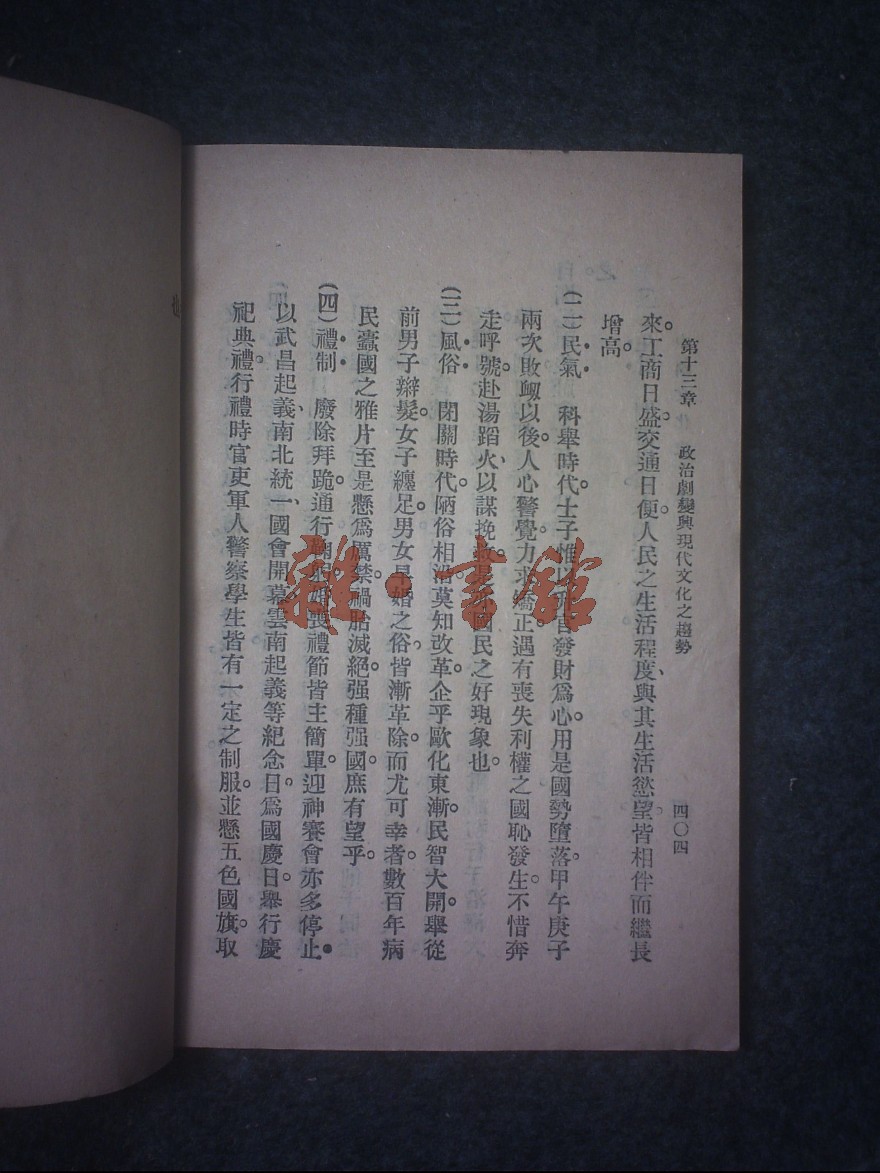 第十三章 政治劇變與現代文化之趨勢 四〇四
來。工商日盛。交通日便。人民之生活程度、與其生活慾望。皆相伴而繼長
增高。
(二)民氣 科舉時代。士子惟以升官發財爲心。用是國勢墮落。甲午庚子
兩次敗衂以後。人心警覺。力求矯正。遇有喪失利權之國恥發生。不惜奔
走呼號。赴湯蹈火、以謀挽救。是亦國民之好現象也。
(三)風俗 閉關時代。陋俗相沿。莫知改革。企乎歐化東漸。民智大開。舉從
前男子辮髮。女子纏足。男女早婚之俗。皆漸革除。而尤可幸者。數百年病
民蠹國之雅片。至是懸爲厲禁。禍胎滅絕。强種强國。庶有望乎。
(四)禮制 廢除拜跪。通行鞠躬。婚喪禮節。皆主簡單。迎神賽會。亦多停止。
以武昌起義、南北統一、國會開幕、雲南起義等紀念日。爲國慶日。舉行慶
祀典禮。行禮時。官吏軍人警察學生。皆有一定之制服。並懸五色國旗。取
雜·書館